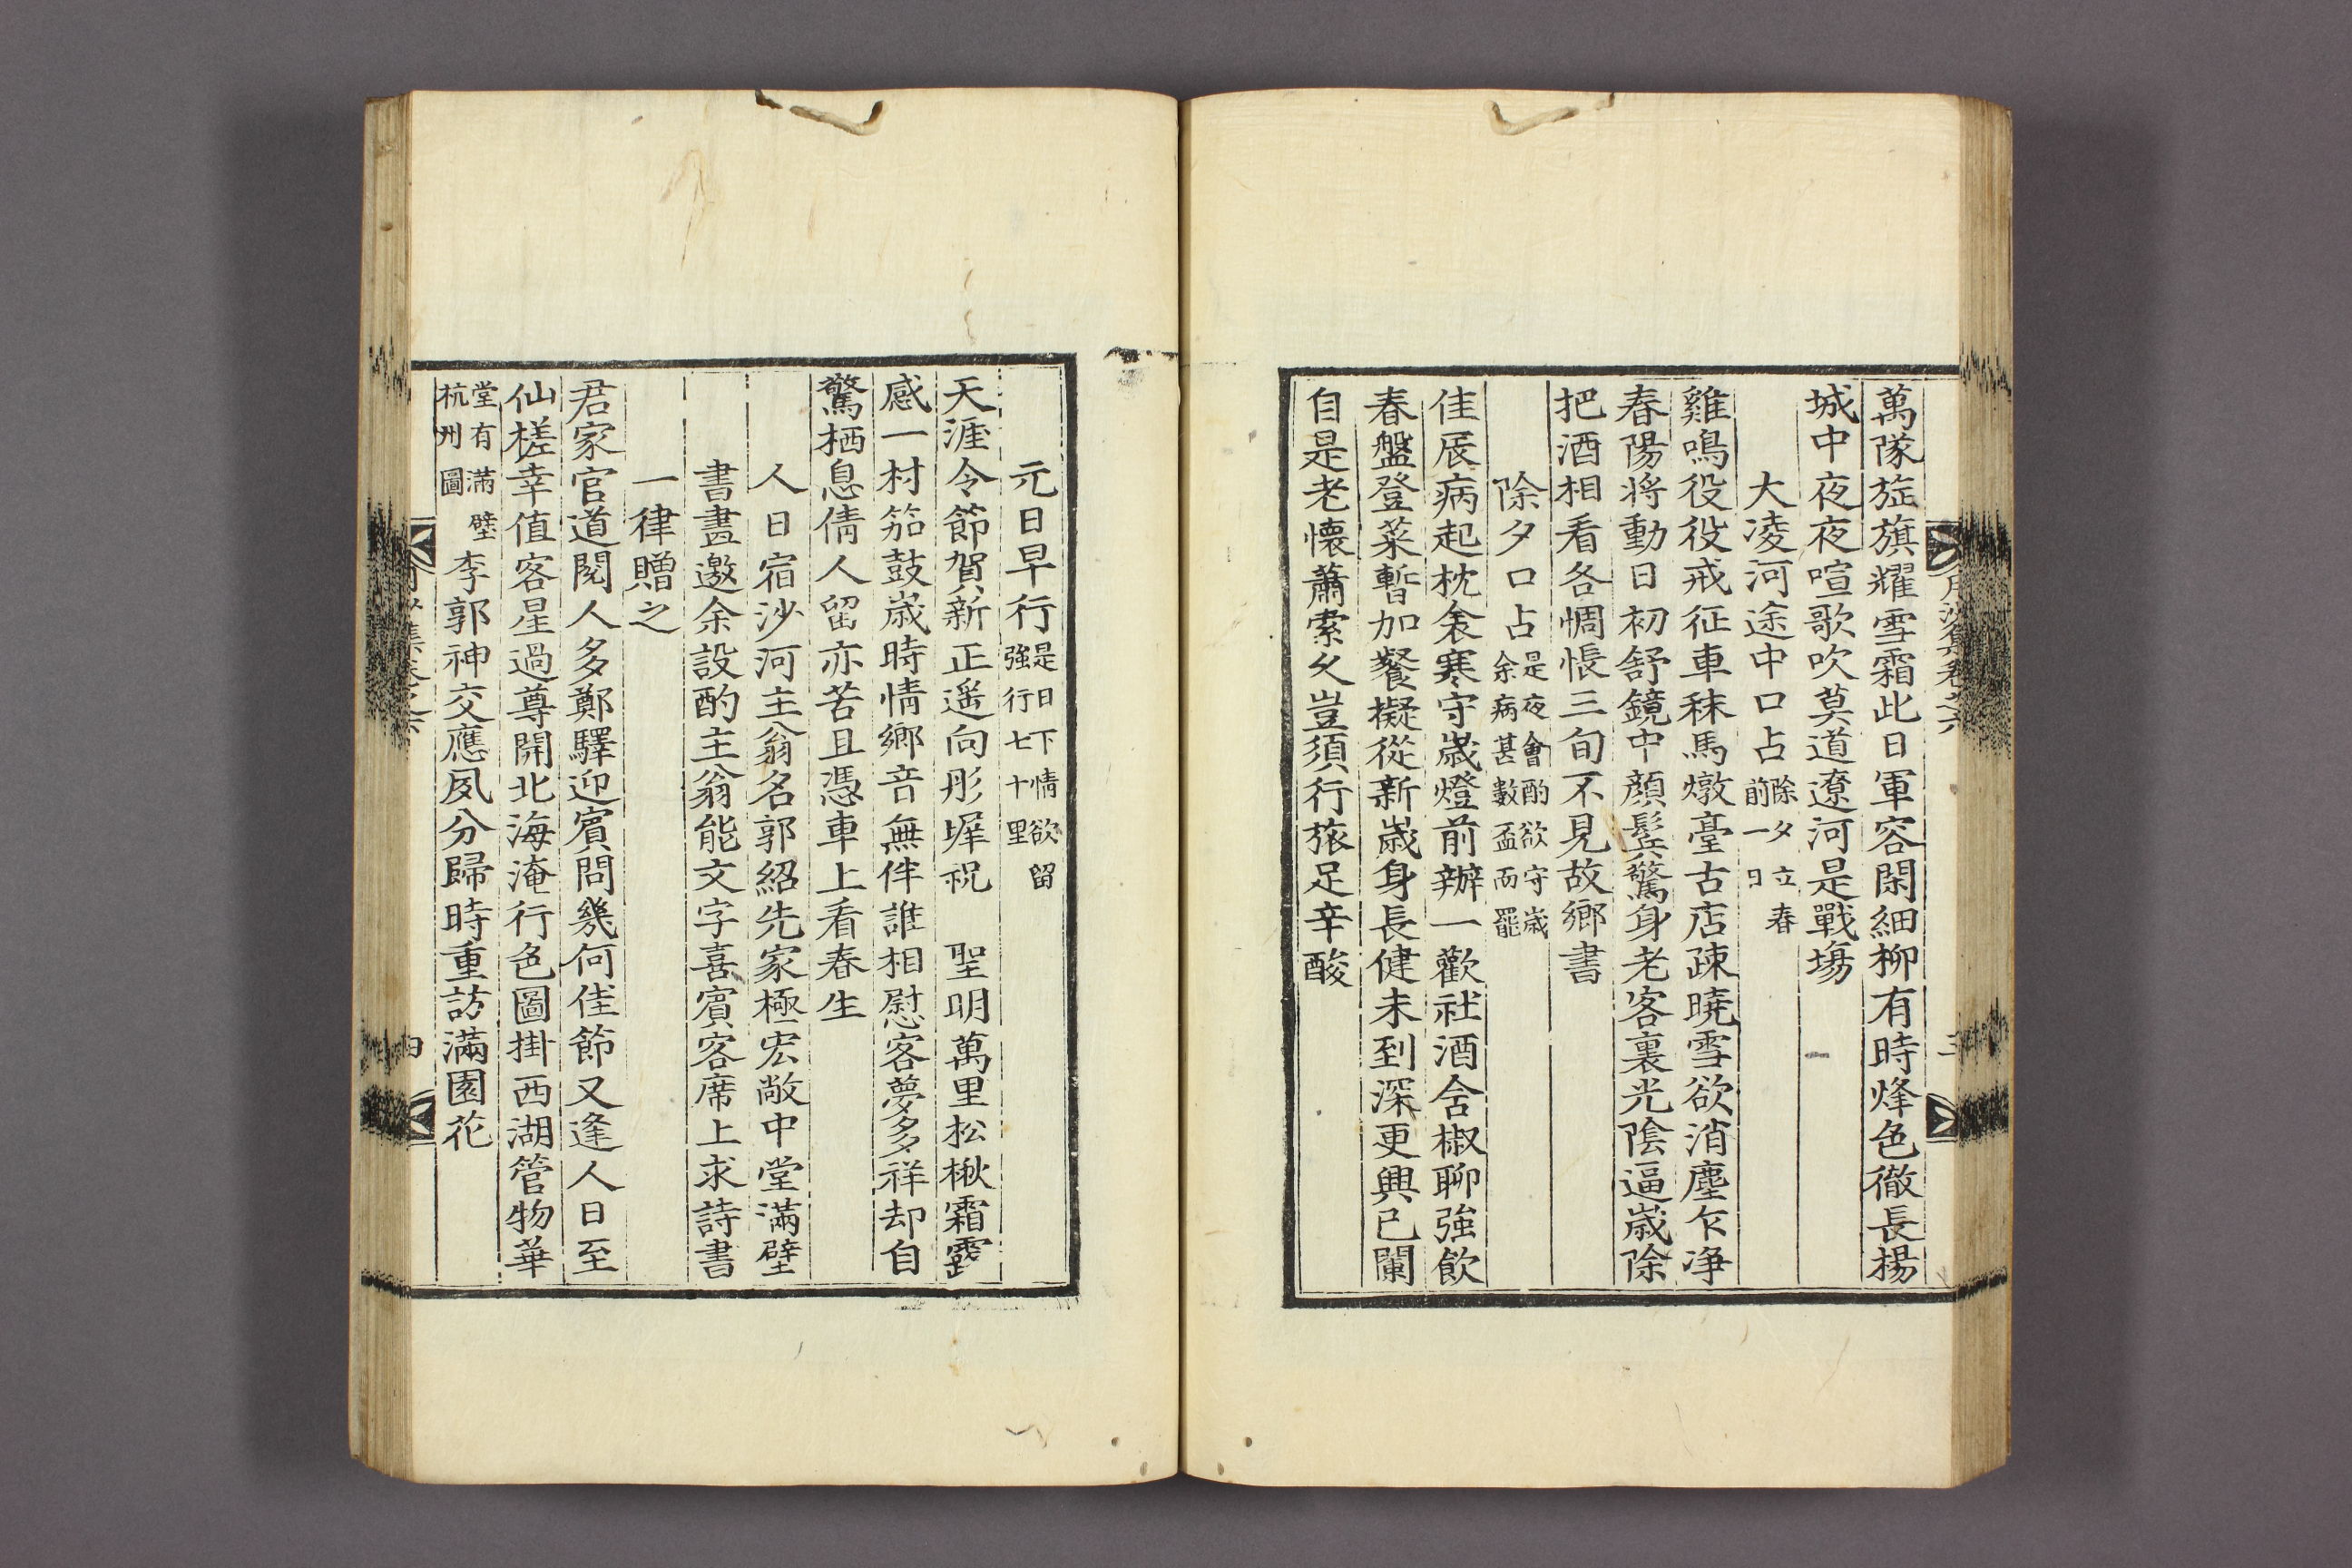 萬隊旌旗耀雪霜此日軍容閑細柳有時烽色徹長楊
城中夜夜喧歌吹莫道遼河是戰場
大凌河途中口占除夕立春前一日
雞鳴役役戒征車秣馬墩臺古店疎曉雪欲消塵乍淨
春陽將動日初舒鏡中顔鬂驚身老客裏光陰逼歲除
把酒相看各惆悵三旬不見故鄉書
除夕口占是夜會酌欲守歲余病甚數盃而罷
佳辰病起枕衾寒守歲燈前辦一歡社酒舍椒聊強飮
春盤登菜暫加餐擬從新歲身長健未到深更興已闌
自是老懷蕭索久豈須行旅足辛酸
元日早行是日下情欲留強行七十里
天涯令節賀新正遥向彤墀祝 聖明萬里松楸霜露
感一村笳鼓歲時情鄉音無伴誰相慰客夢多祥却自
驚栖息倩人留亦苦且憑車上看春生
人日宿沙河主翁名郭紹先家極宏敞中堂滿壁
書畫邀余設酌主翁能文字喜賓客席上求詩書
一律贈之
君家官道閱人多鄭驛迎賓問幾何佳節又逢人日至
仙槎幸值客星過尊開北海淹行色圖掛西湖管物華
堂有滿壁杭州圖李郭神交應夙分歸時重訪滿園花